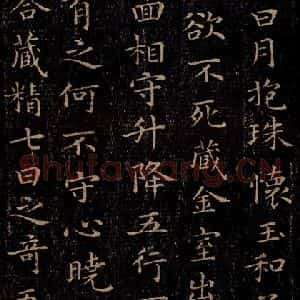 日月抱珠懷玉和
欲不死藏金室出
面相守升降五行一
有之何不守心曉
合藏精七日之奇吾
Shufawang.CN